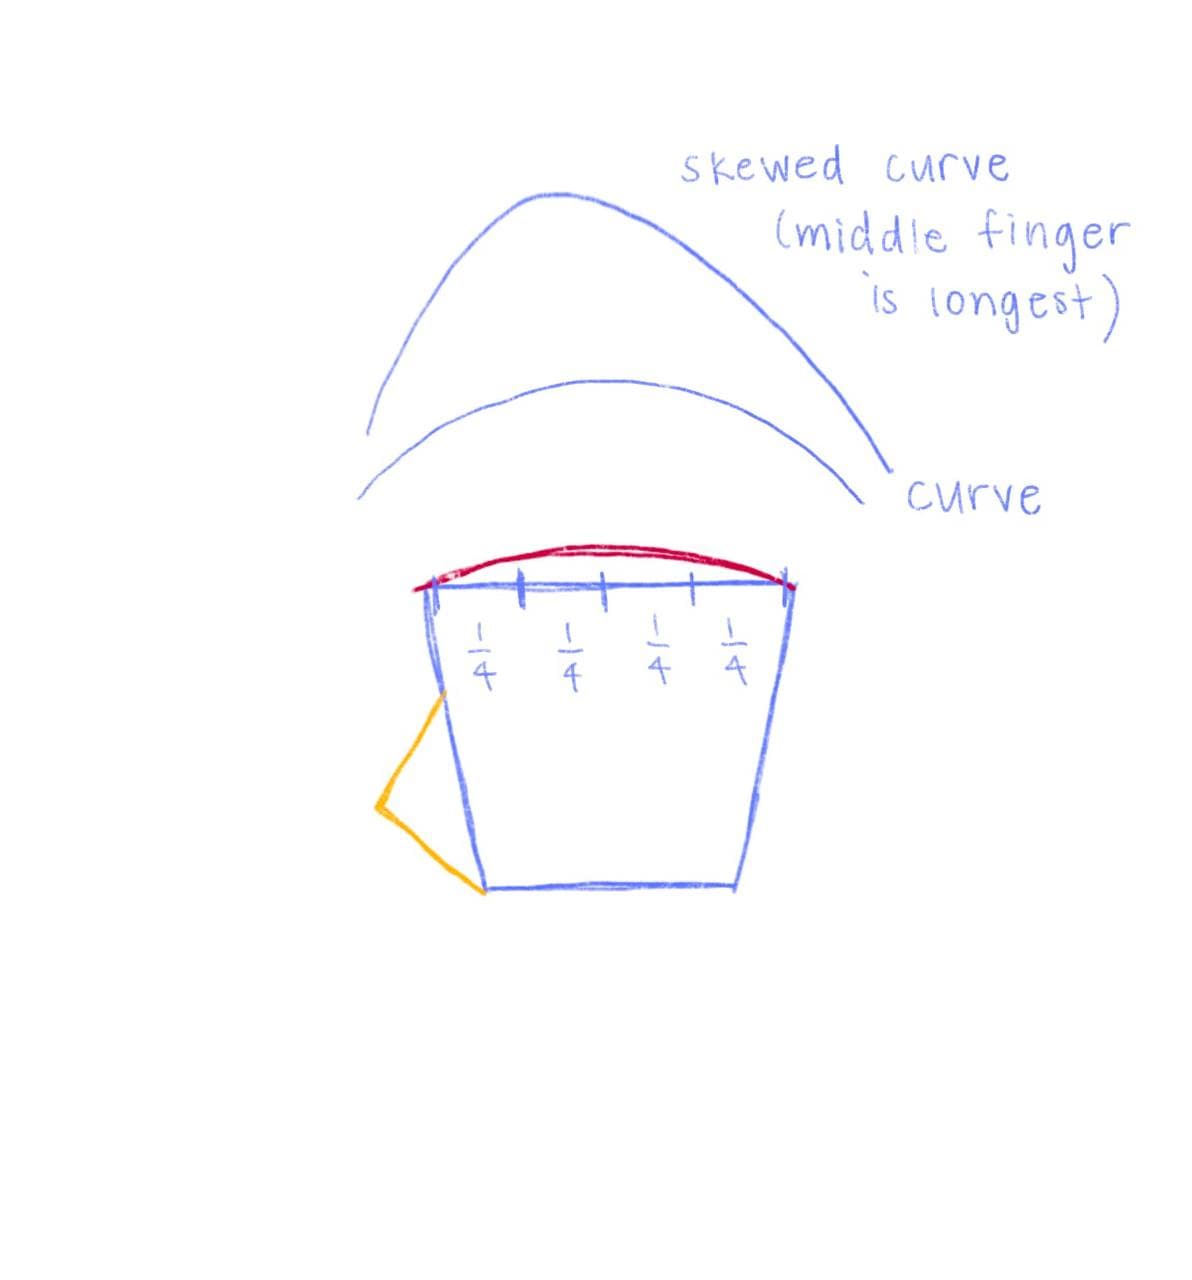 skewed curve
(middle finger
is longest)
curve
1/4 1/4 1/4 1/4